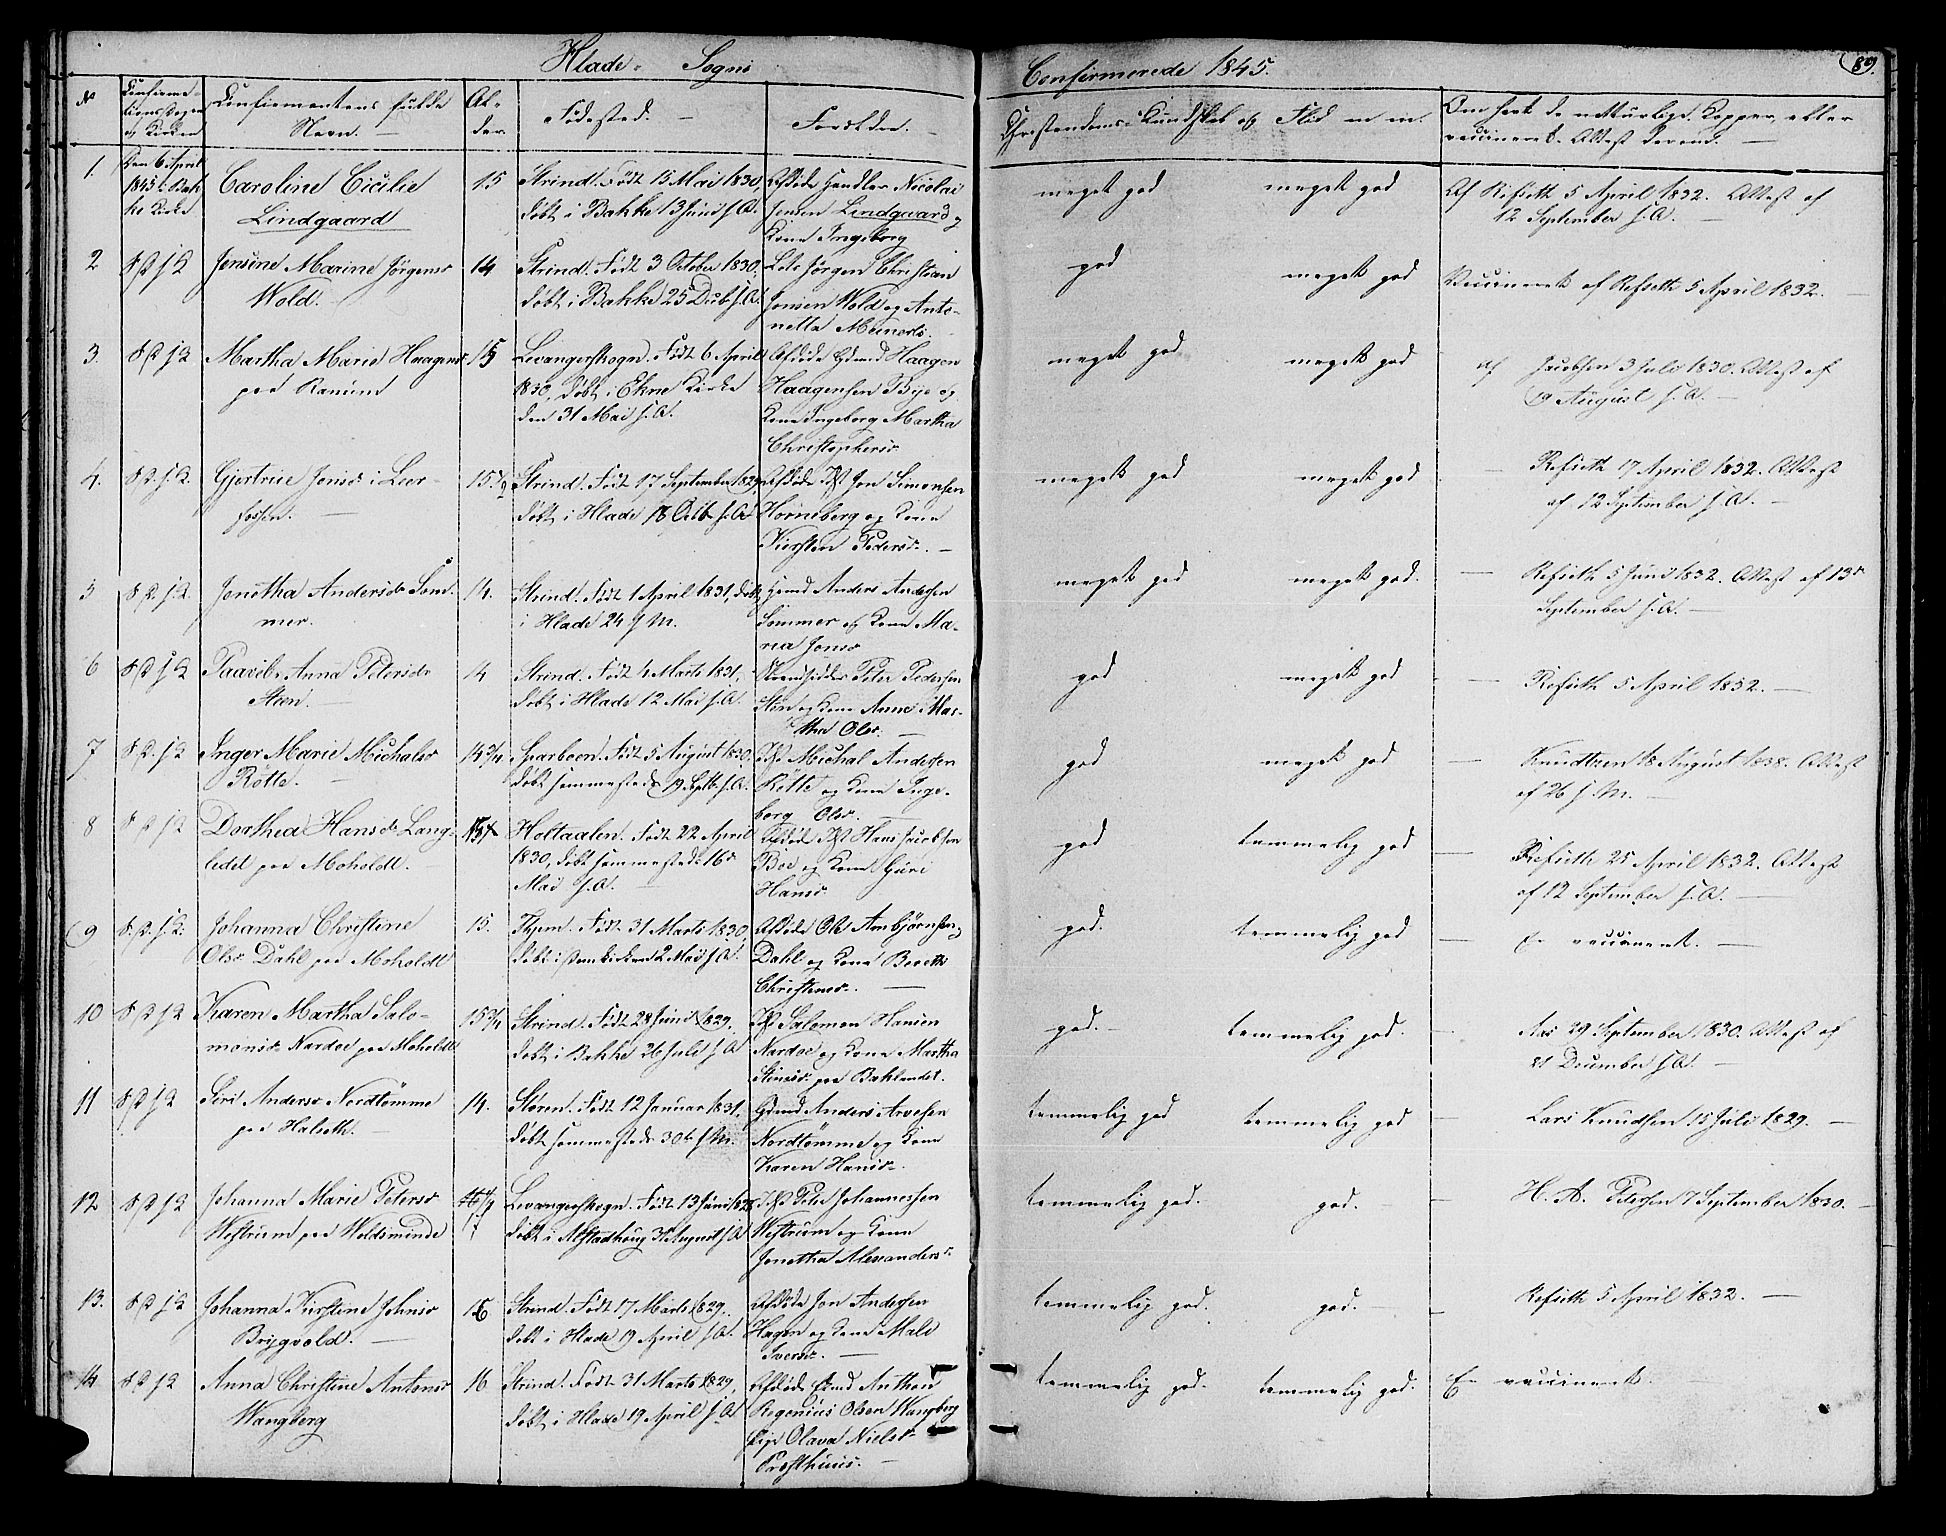 Hlade- Sogn
Confirmerede 1845.
89.
No
Confirma-
tionsdagen
og Kirken
Confirmantens fulde
Navn.
Al-
der
Fødested.
Forældre.
Christendoms-Kundskab og Flid m. m.
Om havt de naturlige Kopper, eller
vaccineret. Attest derom.
1.
Den 6 April
1845 i Bak-
ke Kirke
Caroline Cicilie
Lindgaard
15
Strind. Født 15 Mai 1830,
døbt i Bakke 13 Juni s. A.
Afdøde Handler Nicolai
Jensen Lindgaard og
Kone Ingeborg
meget god
meget god
Af Refseth 5 April 1832. Attest af
12 September s. A.
2
Jensine Marine Jørgensd
Wold.
14
Strind. Født 3 October 1830.
døbt i Bakke 25 Decb s. A.
Lods Jørgen Christian
Jensen Wold og Anto-
nette Meinerts.
god
meget god
Vaccineret af Refseth 5 April 1832.
3.
Martha Marie Haagensd
paa Ranum
15
Levangerskogn. Født 6 April
1830, døbt i Ekne Kirke
den 31 Mai s. A.
Afdøde Gmd Haagen
Haagensen Bye og
Kone Ingeborg Martha
Christophersd
meget god
meget god
af Jacobsen 3 Juli 1830. Attest af
19 August s. A.
4.
Gjertrue Jonsd i Leer-
fossen.
15 1/2
Strind. Født 17 September 1829,
døbt i Hlade 18 Octb s. A.
Afdøde Jon Simonsen
Horneberg og Kone
Kirsten Pedersd.
meget god
meget god
Refseth 17 April 1832. Attest
af 12 September s. A.
5
Jonetha Andersd Som-
mer.
14.
Strind. Født 1 April 1831, døbt
i Hlade 24 s. M.
Gmd Anders Andersen
Sommer og Kone Ma-
ria Jonsd
meget god
meget god.
Refseth 5 Juni 1832. Attest af 13de
September s. A.
6
Anna Petersd
Steen.
14
Strind. Født 4 Marts 1831,
døbt i Hlade 12 Mai s. A.
Strandsidder Peter Pedersen
Steen og Kone Anne Mar-
tha Olsd.
god
meget god
Refseth 5 April 1832.
7
Inger Marie Michalsd
Rötte.
14 3/4
Sparboen. Født 5 August 1830.
døbt sammesteds 19 Septb. s. A.
Michal Andersen
Rötte og Kone Inge-
borg Olsd.
god
meget god
Knudtzen 18 August 1838. Attest
af 26 s. M.
8
Dorthea Hansd Lang-
ledet paa Moholdt.
Holtaalen. Født 22 April
1830, døbt sammesteds 16de
Mai s. A.
Afdøde Hans Jacobsen
Boe og Kone Guri
Hansd
god
temmelig god
Refseth 25 April 1832. Attest
af 12 September s. A.
9
Johanna Christine
Olsd Dahl paa Moholdt
15.
Afdøde Ole Arnbjørnsen
Dahl og Kone Berethe
Christensd.
Født 31 Marts 1830,
2 Mai s. A.
god.
temmelig god
Er vaccineret.
10
Karen Martha Salo-
monsd Nardoe paa Moholdt
15 3/4
Strind. Født 28 Juni 1829.
døbt i Bakke 26 Juli s. A.
Salomon Hansen
Nardoe og Kone Martha
Stensd. paa Baklandet.
god.
temmelig god.
Aas 29 September 1830. Attest af
21 December s. A.
11
Siri Andersd Nordtømme
paa Halseth.
14.
Støren. Født 12 Januar 1831,
døbt sammesteds 30te s. M.
Gmd Anders Arvesen
Nordtømme og Kone
Karen Hansd.
temmelig god
temmelig god
Lars Knudsen 15 Juli 1829.
12
Johanna Marie Petersd
Westrum paa Woldsminde
Levangerskogn. Født 13 Juni 1828
døbt i Alstadhoug 31 August s. A.
Peter Johannessen
Westrum og Kone
Jonetha Alexandersd.
temmelig god.
god.
H. A. Petersen 7 September 1830.
13.
Johanna Kirstine Johnsd
Brygvold.
16
Strind. Født 17 Marts 1829.
døbt i Hlade 19 April s. A.
Afdøde Jon Andersen
Hagen og Kone Mali
Iversd.
temmelig god.
god.
Refseth 5 April 1832.
14
Anna Christine Antonsd
Wangberg
16
Strind. Født 31 Marts 1829,
døbt i Hlade 19 April s. A.
Afdøde Gmd Anthon
Regenius Olsen Wangberg
Olava Nielsd
Presthuus.
temmelig god.
temmelig god.
Er vaccineret.